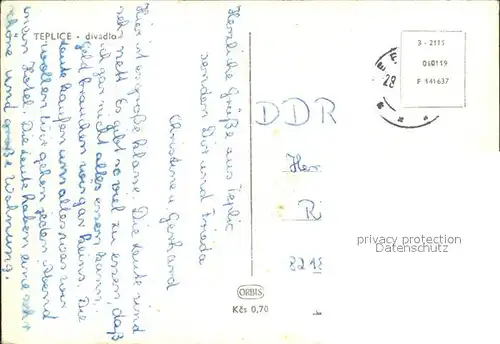 TEPLICE - divadlo
Herzliche Grüße aus Teplic
senden Dir und Frieda
Christine u. Gerhard
Hier ist es große Klasse. Die Leute sind
sehr nett. Es gibt so viel zu essen, daß
ich gar nicht alles essen kann.
Geld brauchen wir gar keins. Die
Leute kaufen uns alles was wir
wollen. Wir gehen jeden Abend
ins Hotel. Die Leute haben eine sehr
schöne und große Wohnung.
DDR
Her
R
ORBIS
Kčs 0,70
3 - 2115
F 141637
28
privacy protection
Datenschutz